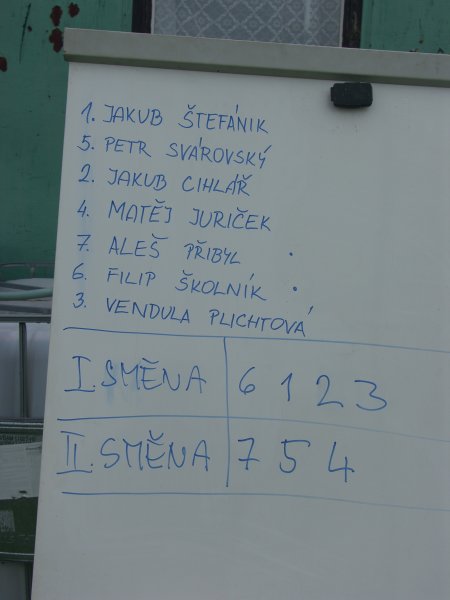 1. JAKUB ŠTEFÁNIK
5. PETR SVÁROVSKÝ
2. JAKUB CIHLÁŘ
4. MATĚJ JURIČEK
7. ALEŠ PŘIBYL
6. FILIP ŠKOLNÍK
3. VENDULA PLICHTOVÁ
I. SMĚNA 6 1 2 3
II. SMĚNA 7 5 4